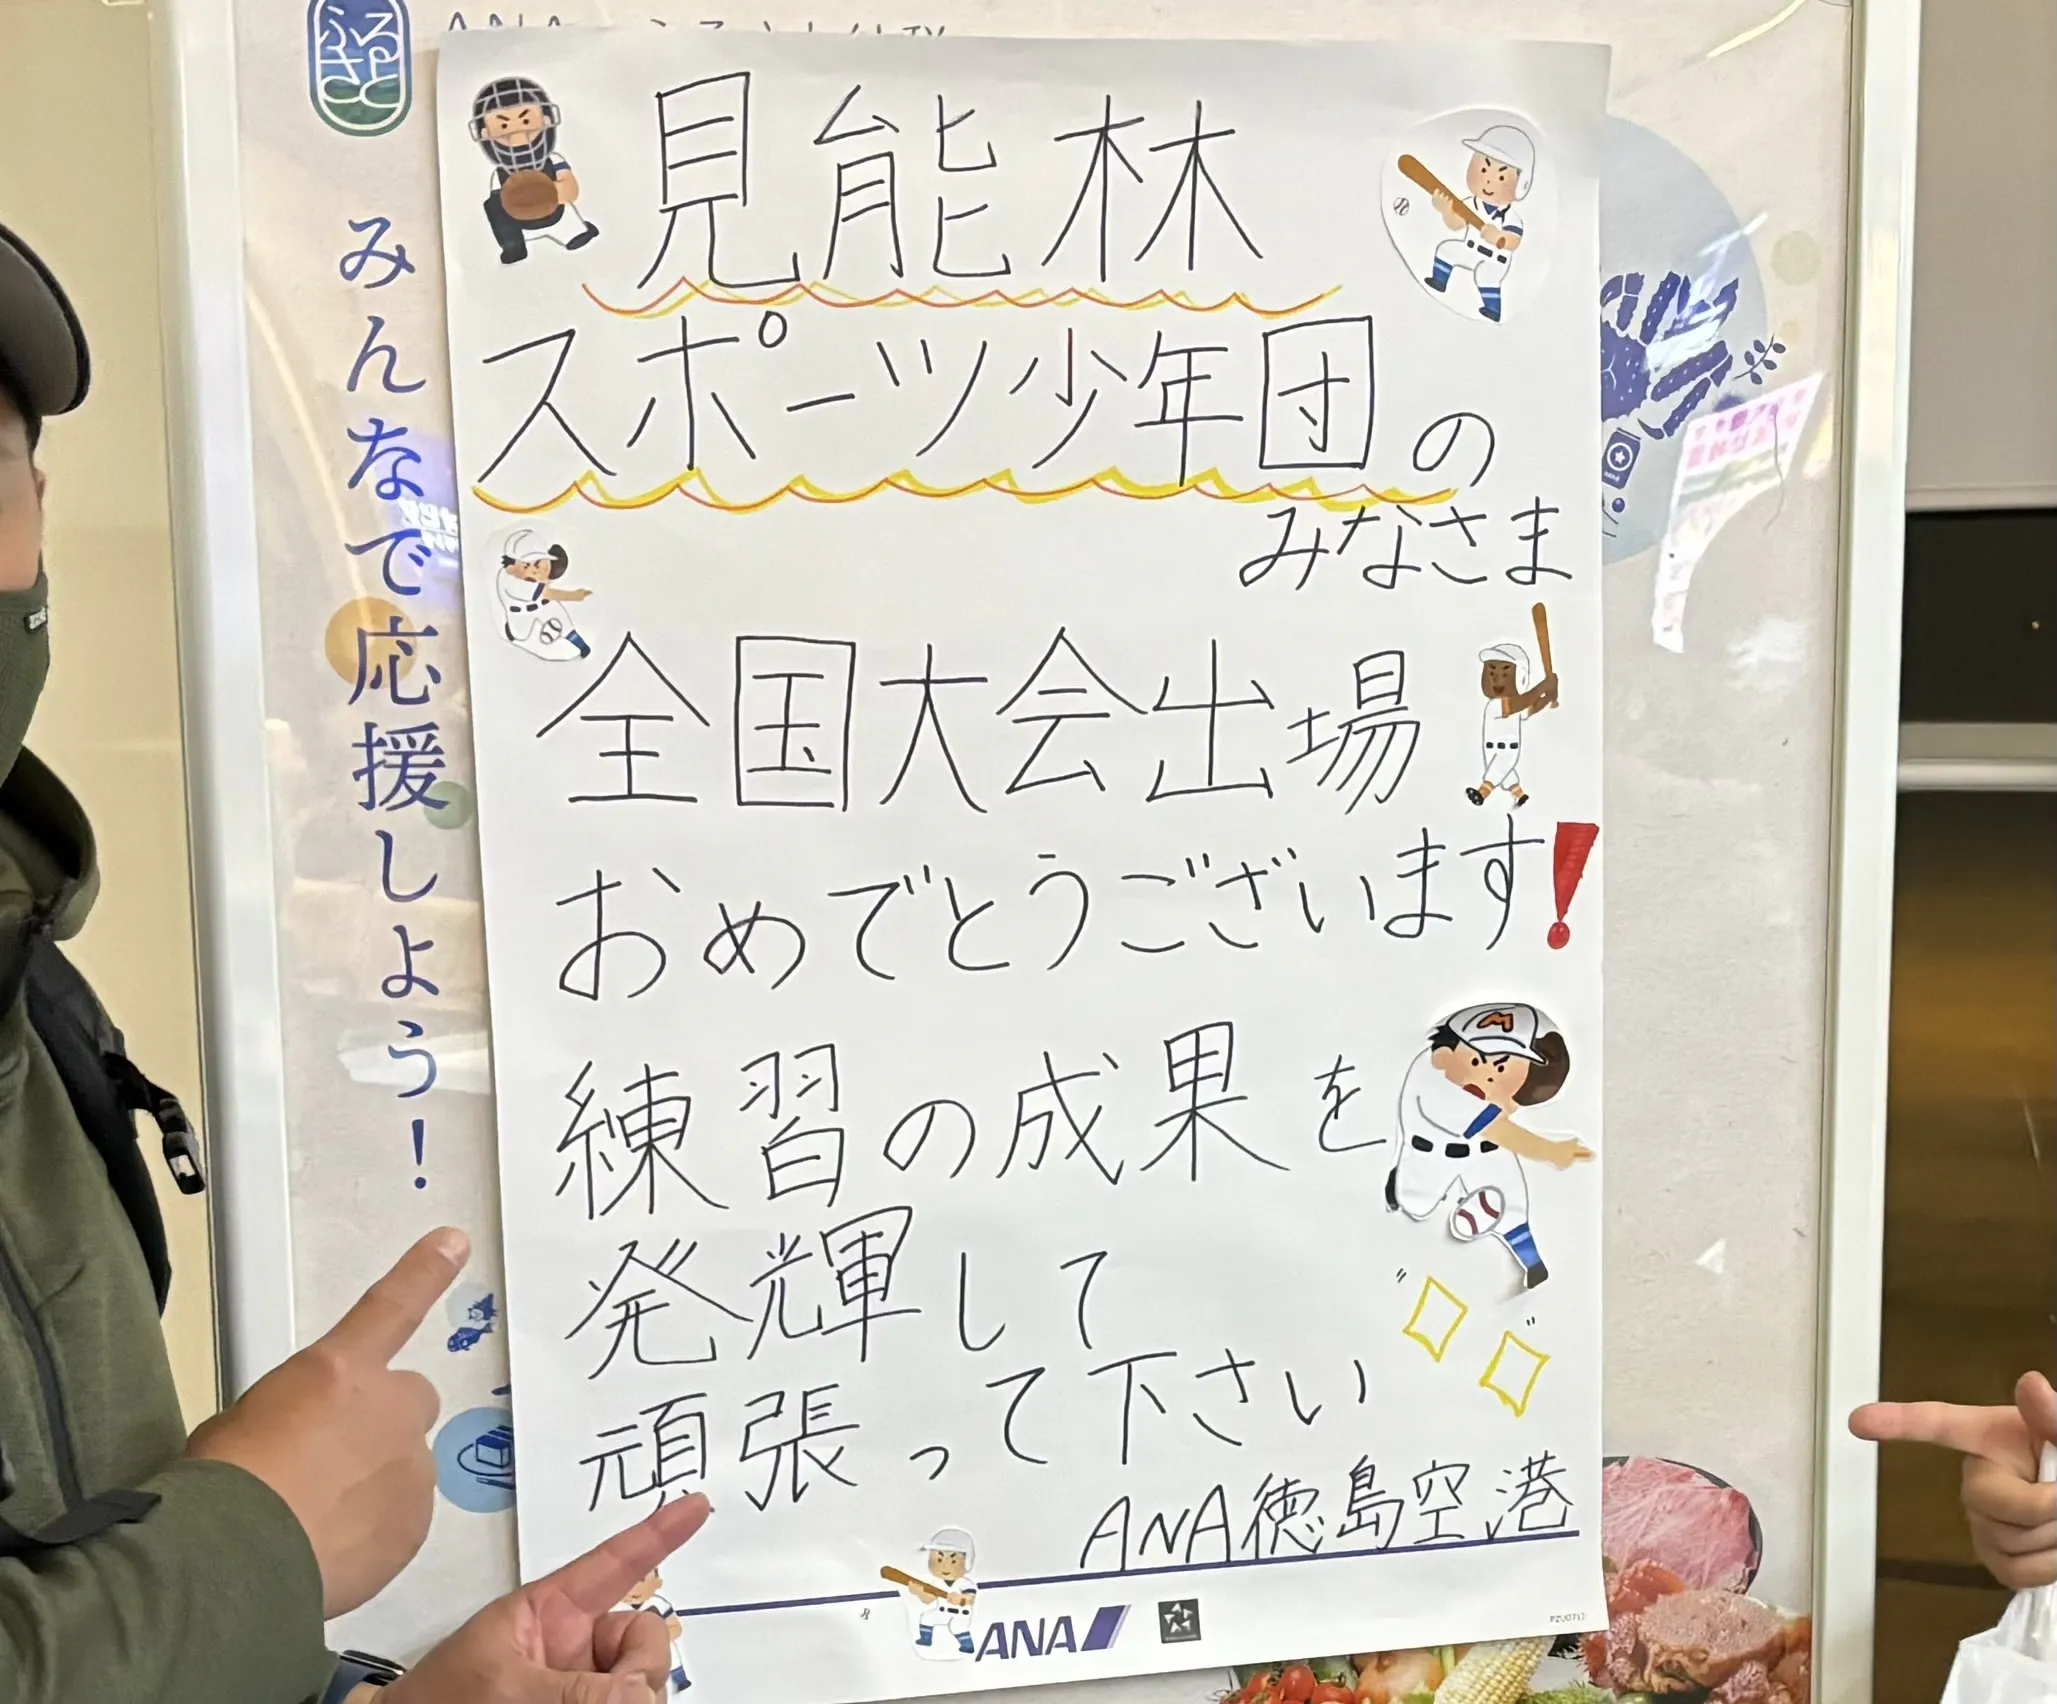 ふるさと
みんなで応援しよう！
見能林
スポーツ少年団の
みなさま
全国大会出場
おめでとうございます！
練習の成果を
発揮して
頑張って下さい
ANA徳島空港
ANA